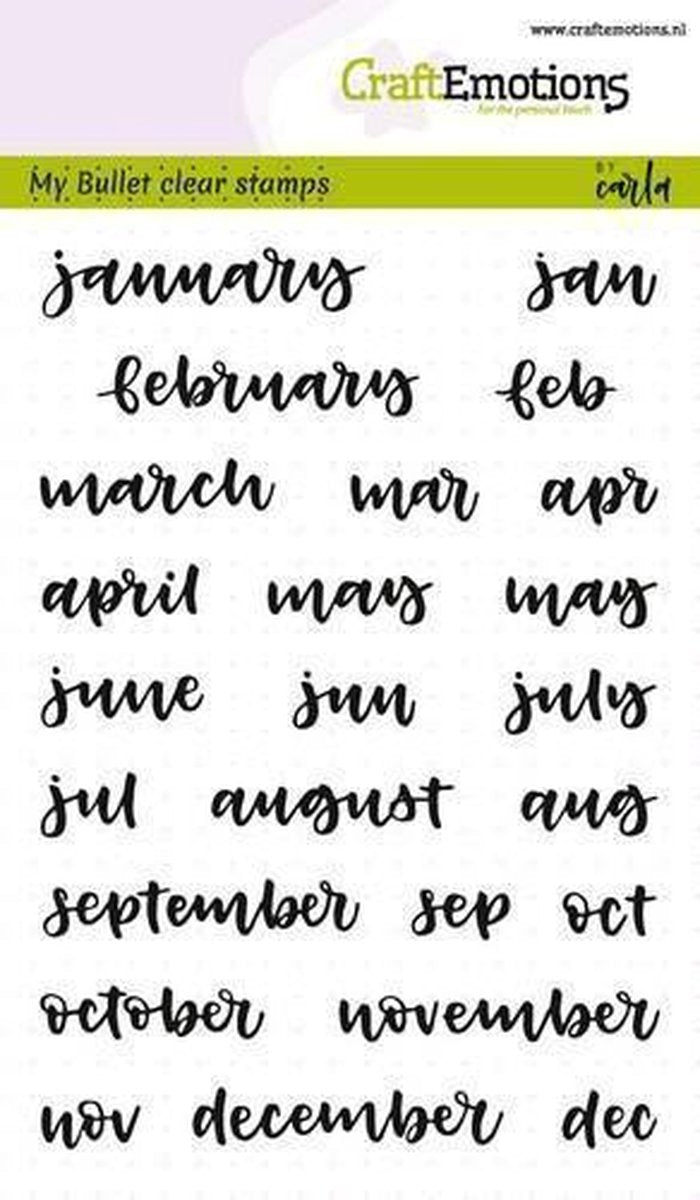 www.craftemotions.nl
CraftEmotions
For the personal touch
My Bullet clear stamps
BY
carla
january jan
february feb
march mar apr
april may may
june jun july
jul august aug
september sep oct
october november
nov december dec